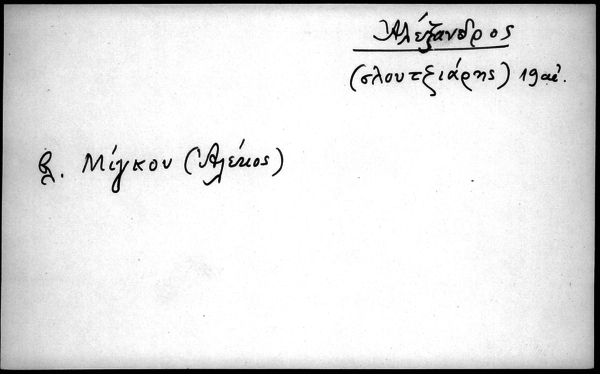 Ἀλέξανδρος
(σλουτζιάρης) 19 αἰ.
βλ. Μίγκου (Ἀλέκος)